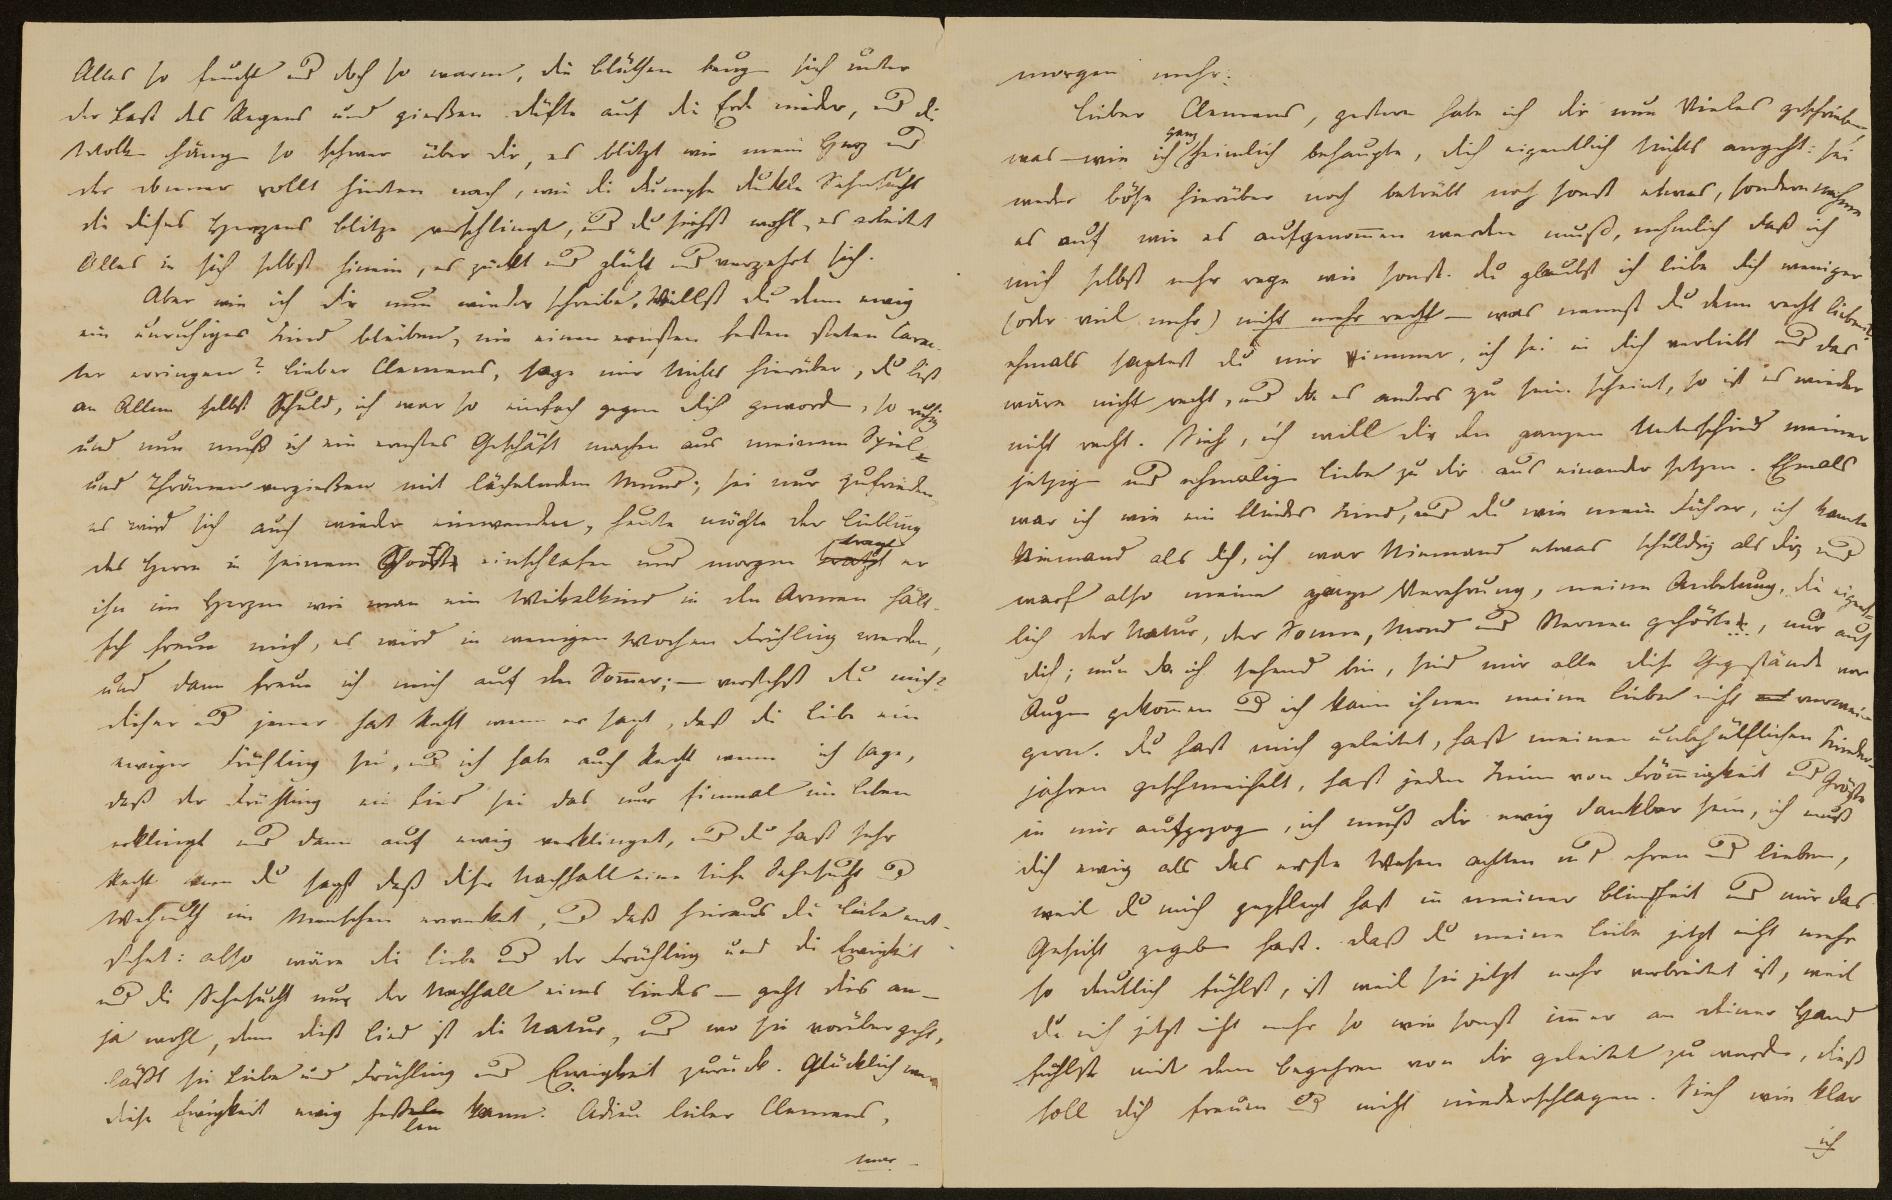 Alles so feucht und doch so warm, die Blüthen beug sich unter
der Last des Regens und gießen Düfte auf die Erde nieder, und di
Wolke häng so schwer über dir, es blitzt wie mein Herz und
der Donner rollt hinten nach, wie di dumpfe dunkle Sehnsucht
die dieses Herzens Blitze verschlingt, und du siehst wohl, es arbeitet
Alles in sich selbst hinein, es zuckt und glüht und verzehrt sich.
Aber wie ich dir nun wieder schreibe, Willst du denn ewig
ein unruhiges Kind bleiben, nie einen ernsten festen steten Carac-
ter erringen? lieber Clemens, sage mir Nichts hierüber, du bist
an Allem selbst Schuld, ich war so einfach gegen dich geword, so ruhig
und nun muß ich ein ernstes Geschäft machen aus meinem Spiel
und Thränen vergießen mit lächelndem Mund; sei nur zufrieden
es wird sich auch wieder einwenden, heute möchte der Liebling
des Herrn in seinem Schooße einschlafen und morgen trage er
ihn im Herzen wie man ein Wikelkind in den Armen hält.
Ich freue mich, es wird in wenigen Wochen Frühling werden,
und dann freue ich mich auf den Som̅er; — verstehst du mich?
dieser und jener hat Recht wenn er sagt, daß di liebe ein
ewiger Frühling sei, und ich habe auch Recht wenn ich sage,
daß der Frühling ein Lied sei das nur Einmal im Leben
erklingt und dann auf ewig verklinget, und du hast sehr
Recht wen du sagst daß dieser Nachhall eine tiefe Sehnsucht und
Wehmuth im Menschen erwecket, und daß hieraus die Liebe ent-
stehet: also wäre die Liebe und der Frühling und di Ewigkeit
und di Sehnsucht nur der Nachhall eines Liedes — geht dies an —
ja wohl, denn dieß Lied ist die Natur, und wo sie vorüber geht,
läßt sie Liebe und Frühling und Ewigkeit zurück. Glücklich wer
diese Ewigkeit ewig fesseln kann. Adieu lieber Clemens,
mor-
morgen mehr.
Lieber Clemens, gestern habe ich dir nun Vieles geschrieben
was — wie ich ganz heimlich behaupte, dich eigentlich Nichts angeht: sei
weder böse hierüber noch betrübt noch sonst etwas, sondern nehme
es auf wie es aufgenom̅en werden muß, nehmlich daß ich
mich selbst mehr rege wie sonst. du glaubst ich liebe dich weniger
(oder viel mehr) nicht mehr recht — was nennst du denn recht lieben?
ehmals sagtest du mir immer, ich sei in dich verliebt und das
wäre nicht recht, und da es anders zu sein scheint, so ist es wieder
nicht recht. Sieh, ich will dir den ganzen Unterschied meiner
jetzig und ehmalig Liebe zu dir aus einander setzen. Ehmals
war ich wie ein blindes Kind, und du wie mein Führer, ich kannte
Niemand als dich, ich war Niemand etwas schuldig als dir und
warf also meine ganze Verehrung, meine Anbetung, die eigent-
lich der Natur, der Sonne, Mond und Sternen gehörte, nur auf
dich; nun da ich sehend bin, sind mir alle diese Gegenstände vor
Augen gekom̅en und ich kann ihnen meine Liebe nicht verwei-
gern. du hast mich geleitet, hast meinen unbehülflichen Kinder-
jahren geschmeichelt, hast jeden Keim von From̅igkeit und Größe
in mir aufgezog, ich muß dir ewig dankbar sein, ich muß
dich ewig als das erste Wesen achten und ehren und lieben,
weil du mich gepflegt hast in meiner Blindheit und mir das
Gesicht gegeben hast. daß du meine Liebe jetzt nicht mehr
so deutlich fühlst, ist weil sie jetzt mehr verbreitet ist, weil
du mich jetzt nicht mehr so wie sonst im̅er an deiner Hand
fühlst mit dem Begehren von dir geleitet zu werden, dieß
soll dich freuen und nicht niederschlagen. Sieh wie klar
ich